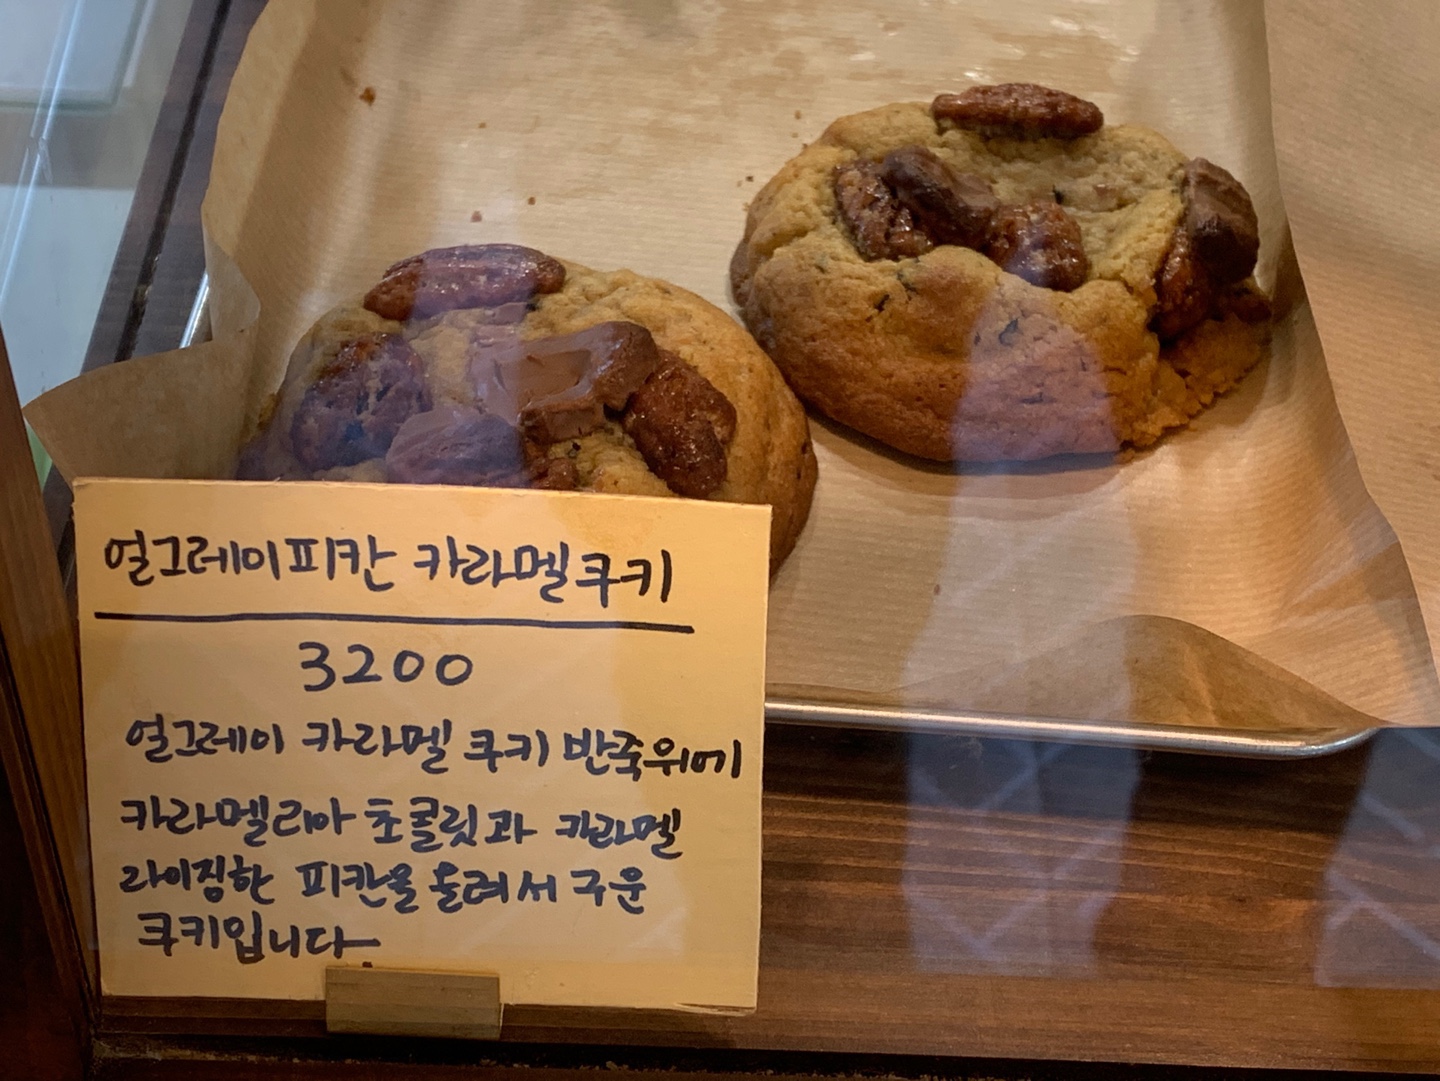 얼그레이피칸 카라멜쿠키
3200
얼그레이 카라멜 쿠키 반죽위에
카라멜리아 초콜릿과 카라멜
라이징한 피칸을 올려서 구운
쿠키입니다.